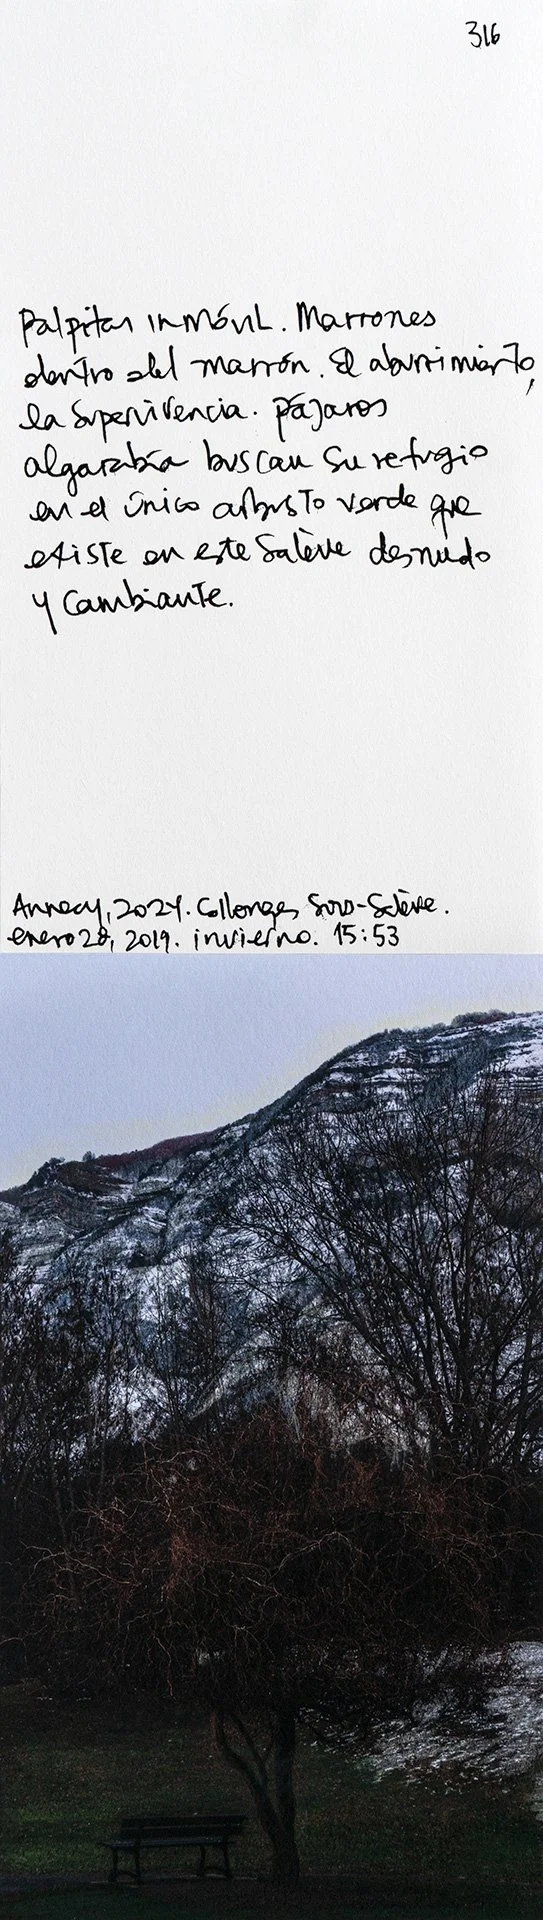 316
Palpitar inmóvil. Marrones
dentro del marrón. El aburrimiento,
la supervivencia. Pájaros
algarabía buscan su refugio
en el único arbusto verde que
existe en este Salève desnudo
y cambiante.
Annecy, 2024. Collonges Sous-Salève.
enero 28, 2019. invierno. 15:53